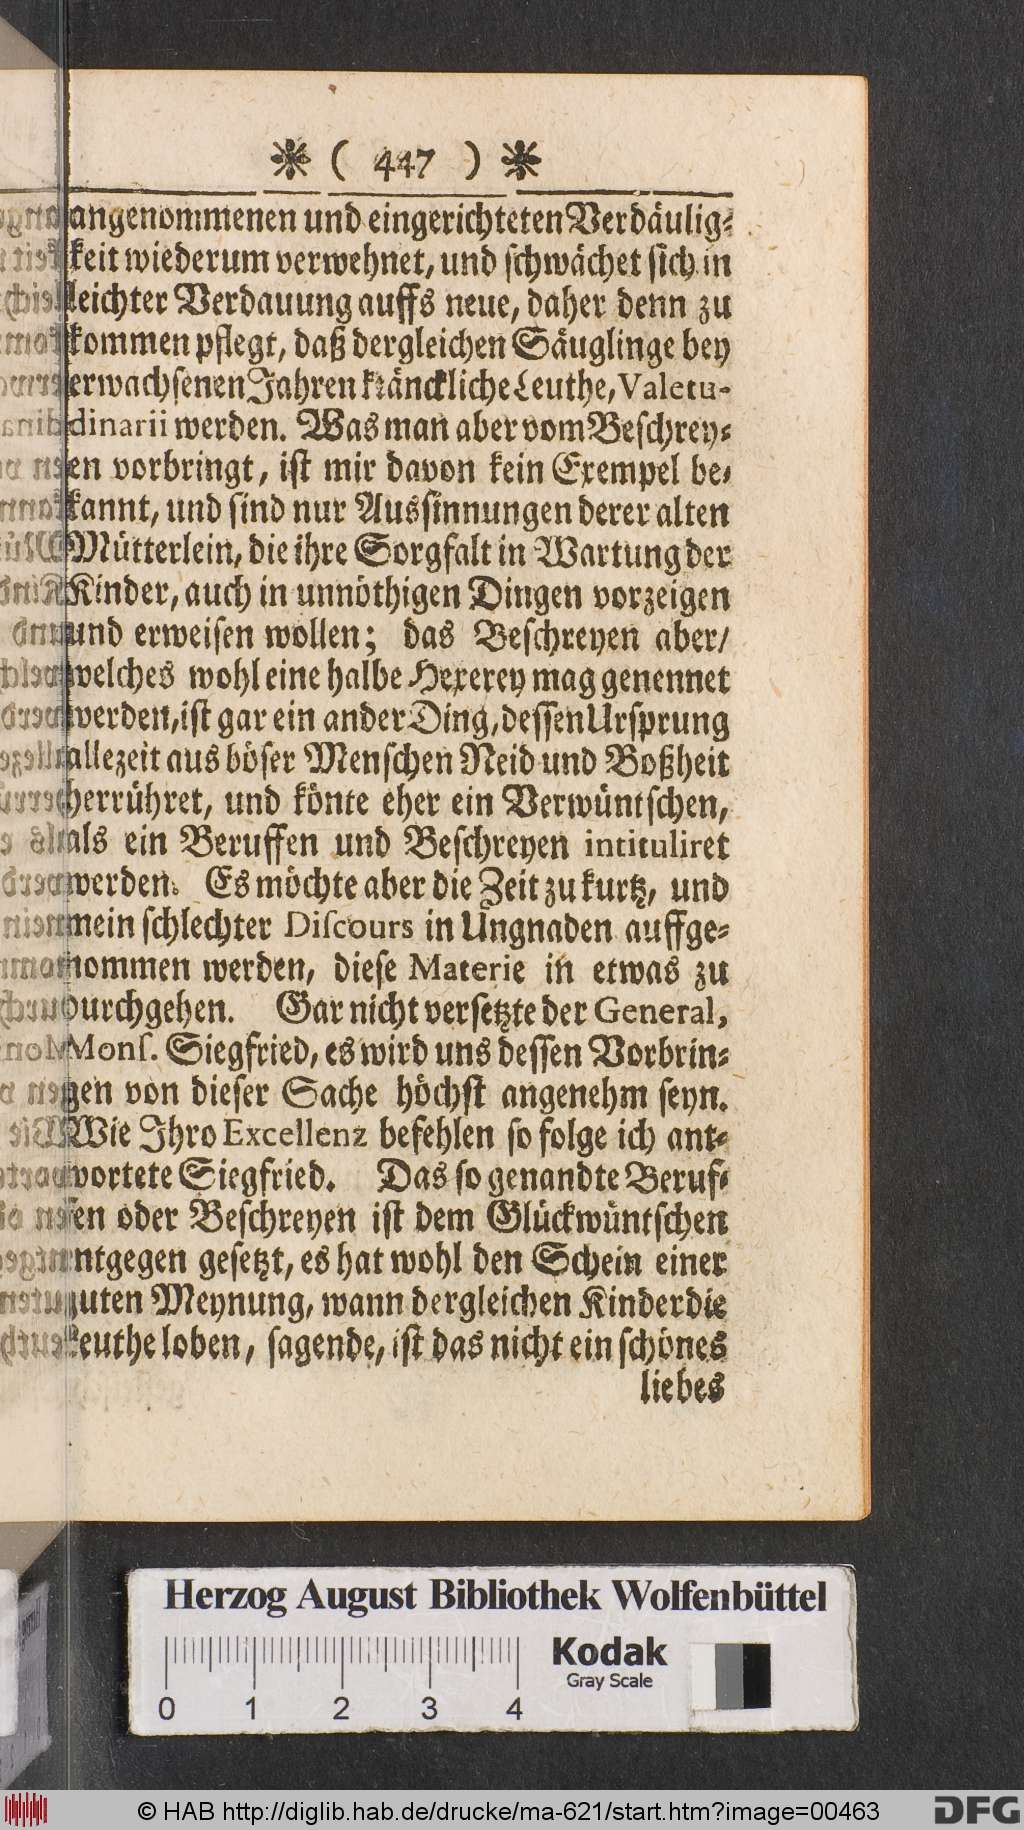 ❋ ( 447 ) ❋
angenommenen und eingerichteten Verdäulig⸗
keit wiederum verwehnet, und ſchwächet ſich in
leichter Verdauung auffs neue, daher denn zu
kommen pflegt, daß dergleichen Säuglinge bey
erwachſenen Jahren kränckliche Leuthe, Valetu-
dinarii werden. Was man aber vom Beſchrey⸗
en vorbringt, iſt mir davon kein Exempel be⸗
kannt, und ſind nur Ausſinnungen derer alten
Mütterlein, die ihre Sorgfalt in Wartung der
Kinder, auch in unnöthigen Dingen vorzeigen
und erweiſen wollen; das Beſchreyen aber/
welches wohl eine halbe Hexerey mag genennet
werden, iſt gar ein ander Ding, deſſen Urſprung
allezeit aus böſer Menſchen Neid und Boßheit
herrühret, und könte eher ein Verwüntſchen,
als ein Beruffen und Beſchreyen intituliret
werden. Es möchte aber die Zeit zu kurtz, und
mein ſchlechter Diſcours in Ungnaden auffge⸗
nommen werden, dieſe Materie in etwas zu
durchgehen. Gar nicht verſetzte der General,
Monſ. Siegfried, es wird uns deſſen Vorbrin⸗
gen von dieſer Sache höchſt angenehm ſeyn.
Wie Ihro Excellenz befehlen ſo folge ich ant⸗
wortete Siegfried. Das ſo genandte Beruf⸗
fen oder Beſchreyen iſt dem Glückwüntſchen
entgegen geſetzt, es hat wohl den Schein einer
guten Meynung, wann dergleichen Kinder die
Leuthe loben, ſagende, iſt das nicht ein ſchönes
liebes
Herzog August Bibliothek Wolfenbüttel
Kodak
Gray Scale
0 1 2 3 4
© HAB http://diglib.hab.de/drucke/ma-621/start.htm?image=00463
DFG